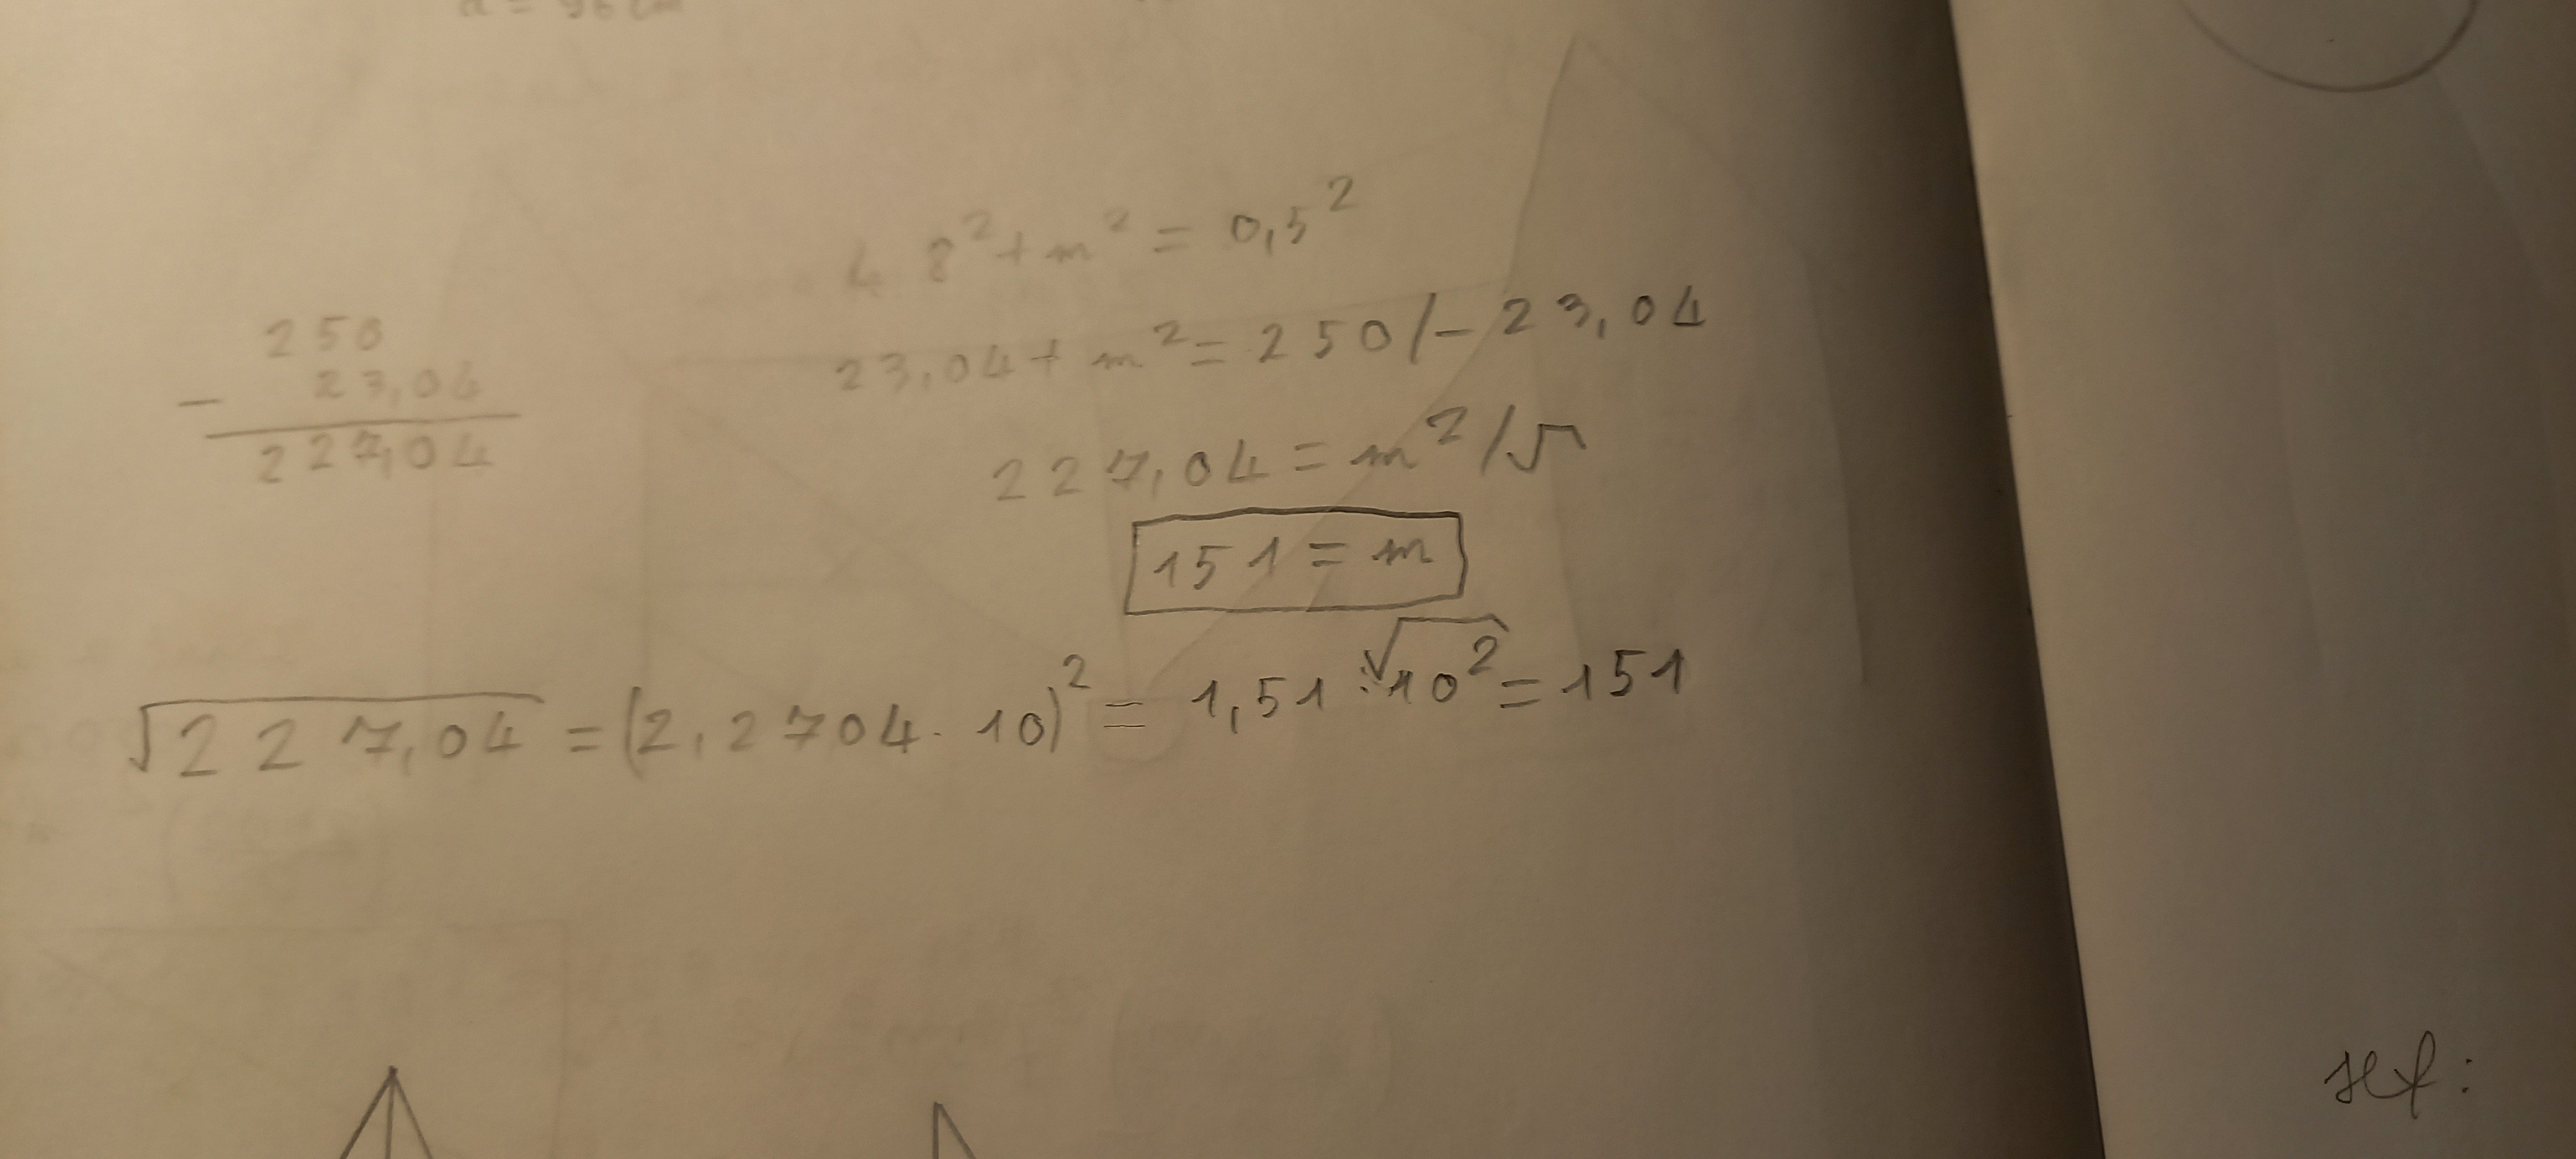 48² + m² = 0,5²
250
23,04 + m² = 250 /- 23,04
- 23,04
227,04
227,04 = m² /√
151 = m
√227,04 = (2,2704 · 10)² = 1,51 · √10² = 151